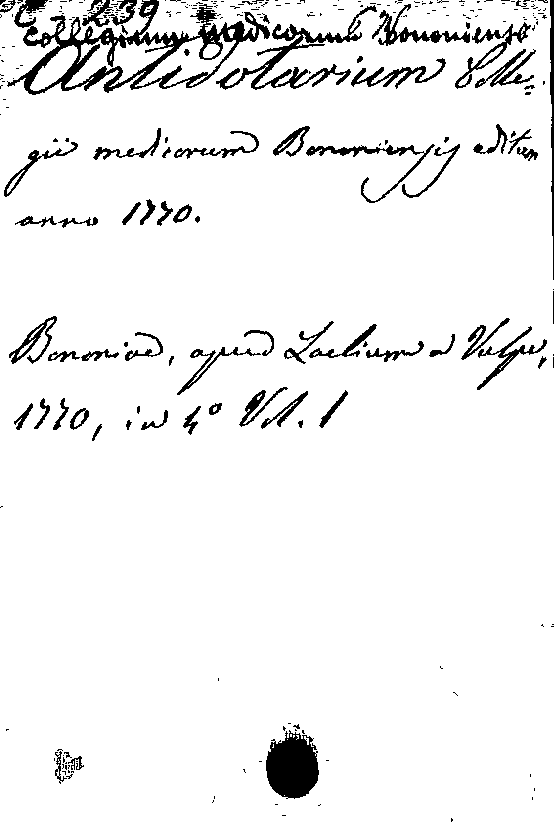 239
Collegium medicorum Bononiense
Antidotarium Colle=
gii medicorum Bononiensis editum
anno 1770.
Bononiae, apud Laelium a Vulpe,
1770, in 4° Vol. 1